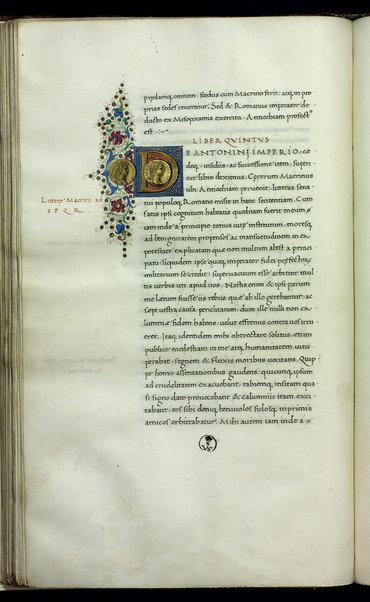 predamq; omnem. foedus cum Macrino ferit. atq; in pro
prias sedes revertitur. Sed & Romanus imperator de
ducto ex Mesopotamia exercitu. Antiochiam profect'
est.
LIBER QUINTUS
DE ANTONINI IMPERIO. ce
deq. insidiis. ac successione item. superi
ore libro diximus. Ceterum Macrinus
ubi Antiochiam pervenit. litteras sena
tui populoq; Romano misit in hanc sententiam. Cum
satis ipsi cognitum habeatis quodnam fuerit meum &
iam inde a principio totius uitae institutum. moresq;
ad benignitatem propensos ac mansuetudinem in ea
potestate explicatam quae non multum abest a princi
patu. siquidem ipse quoq; imperator fidei prefectorum
militarium se credit. supervacuum esse arbitror mul
tis verbis uti apud vos. Nostis enim & ipsi parum
me letum fuisse iis rebus quae ab illo gerebantur. ac
sepe vestra causa periclitatum. dum ille nulli non ca
lumniae fidem habens. velut effrenus contra vos irru
eret. Itaq; identidem mihi obtrectare solitus. etiam
publice modestiam in me atq; humanitatem uitu
perabat. segnem & fluxis moribus vocitans. Quip
pe homo assentationibus gaudens. quicunq; ipsum
ad crudelitatem exacuebant. rabiemq; insitam qua
si signo dato provocabant & calumniis iram exci
tabant. eos sibi demq; benivolos fidosq; in primis
amicos arbitrabatur. Mihi autem iam inde a
Litterae Macrini ad
S. P. Q. R.